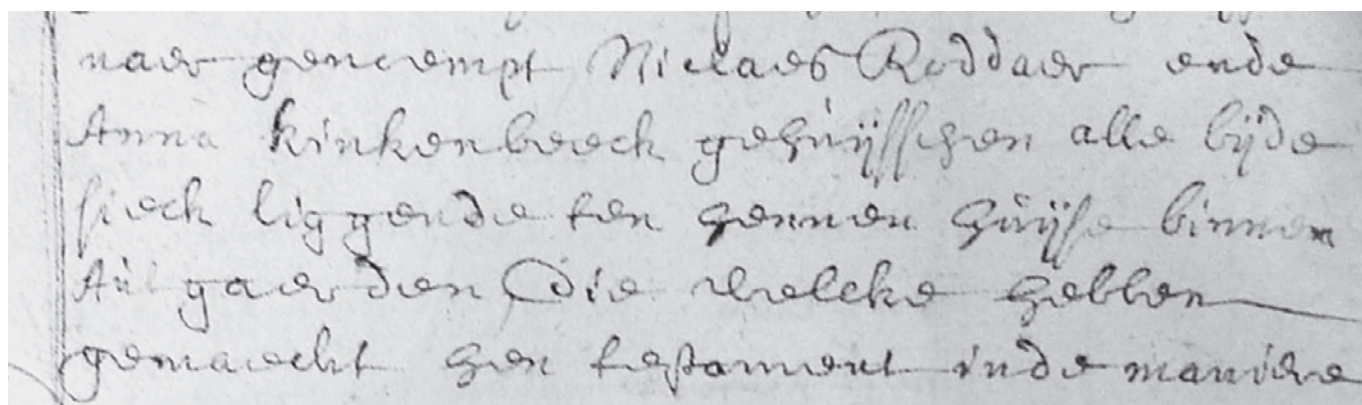 naer genoempt Niclaes Roddaer ende
Anna kinkenbeeck gehuijsschen alle bijde
sieck liggende ten hennen huijse binnen
gaerden die welcke hebben
gemaeckt hen testament inde maniere